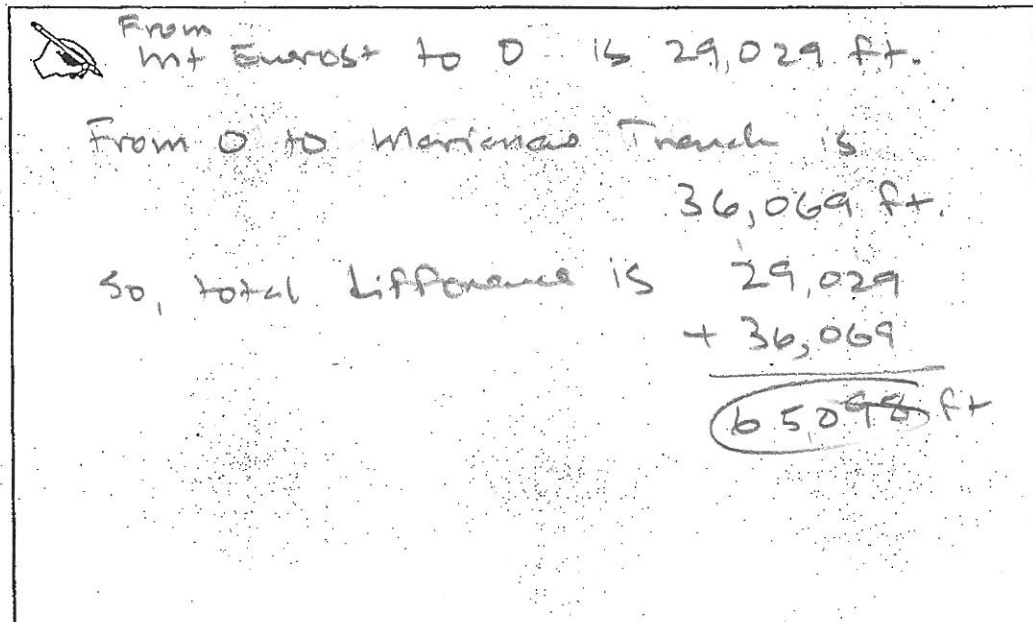 From
Mt Everest to 0 is 29,029 ft.
From 0 to Marianas Trench is
36,069 ft.
So, total difference is 29,029
+ 36,069
65,098 ft